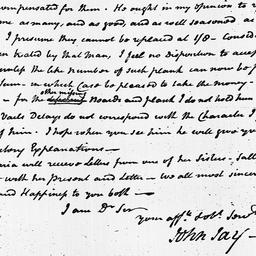 compensated for them. He ought in my opinion to r
me as many, and as good, and as well seasoned a
I presume they cannot be replaced at 18/- Consid
en treated by that Man, I feel no disposition to accep
unless the like number of such plank can now be p
Sum- in which Case be pleased to take the money -
- for the Boards and plank I do not hold him
Vails Delays do not correspond with the Character I
of him. I hope when you see him he will give you
factory Explanations -
ria will receive Letters from one of her Sisters - Sall
with her Present and Letter - we all most sincer
and Happiness to you both -
I am Dr Sir
your affte & obt Servt
John Jay -